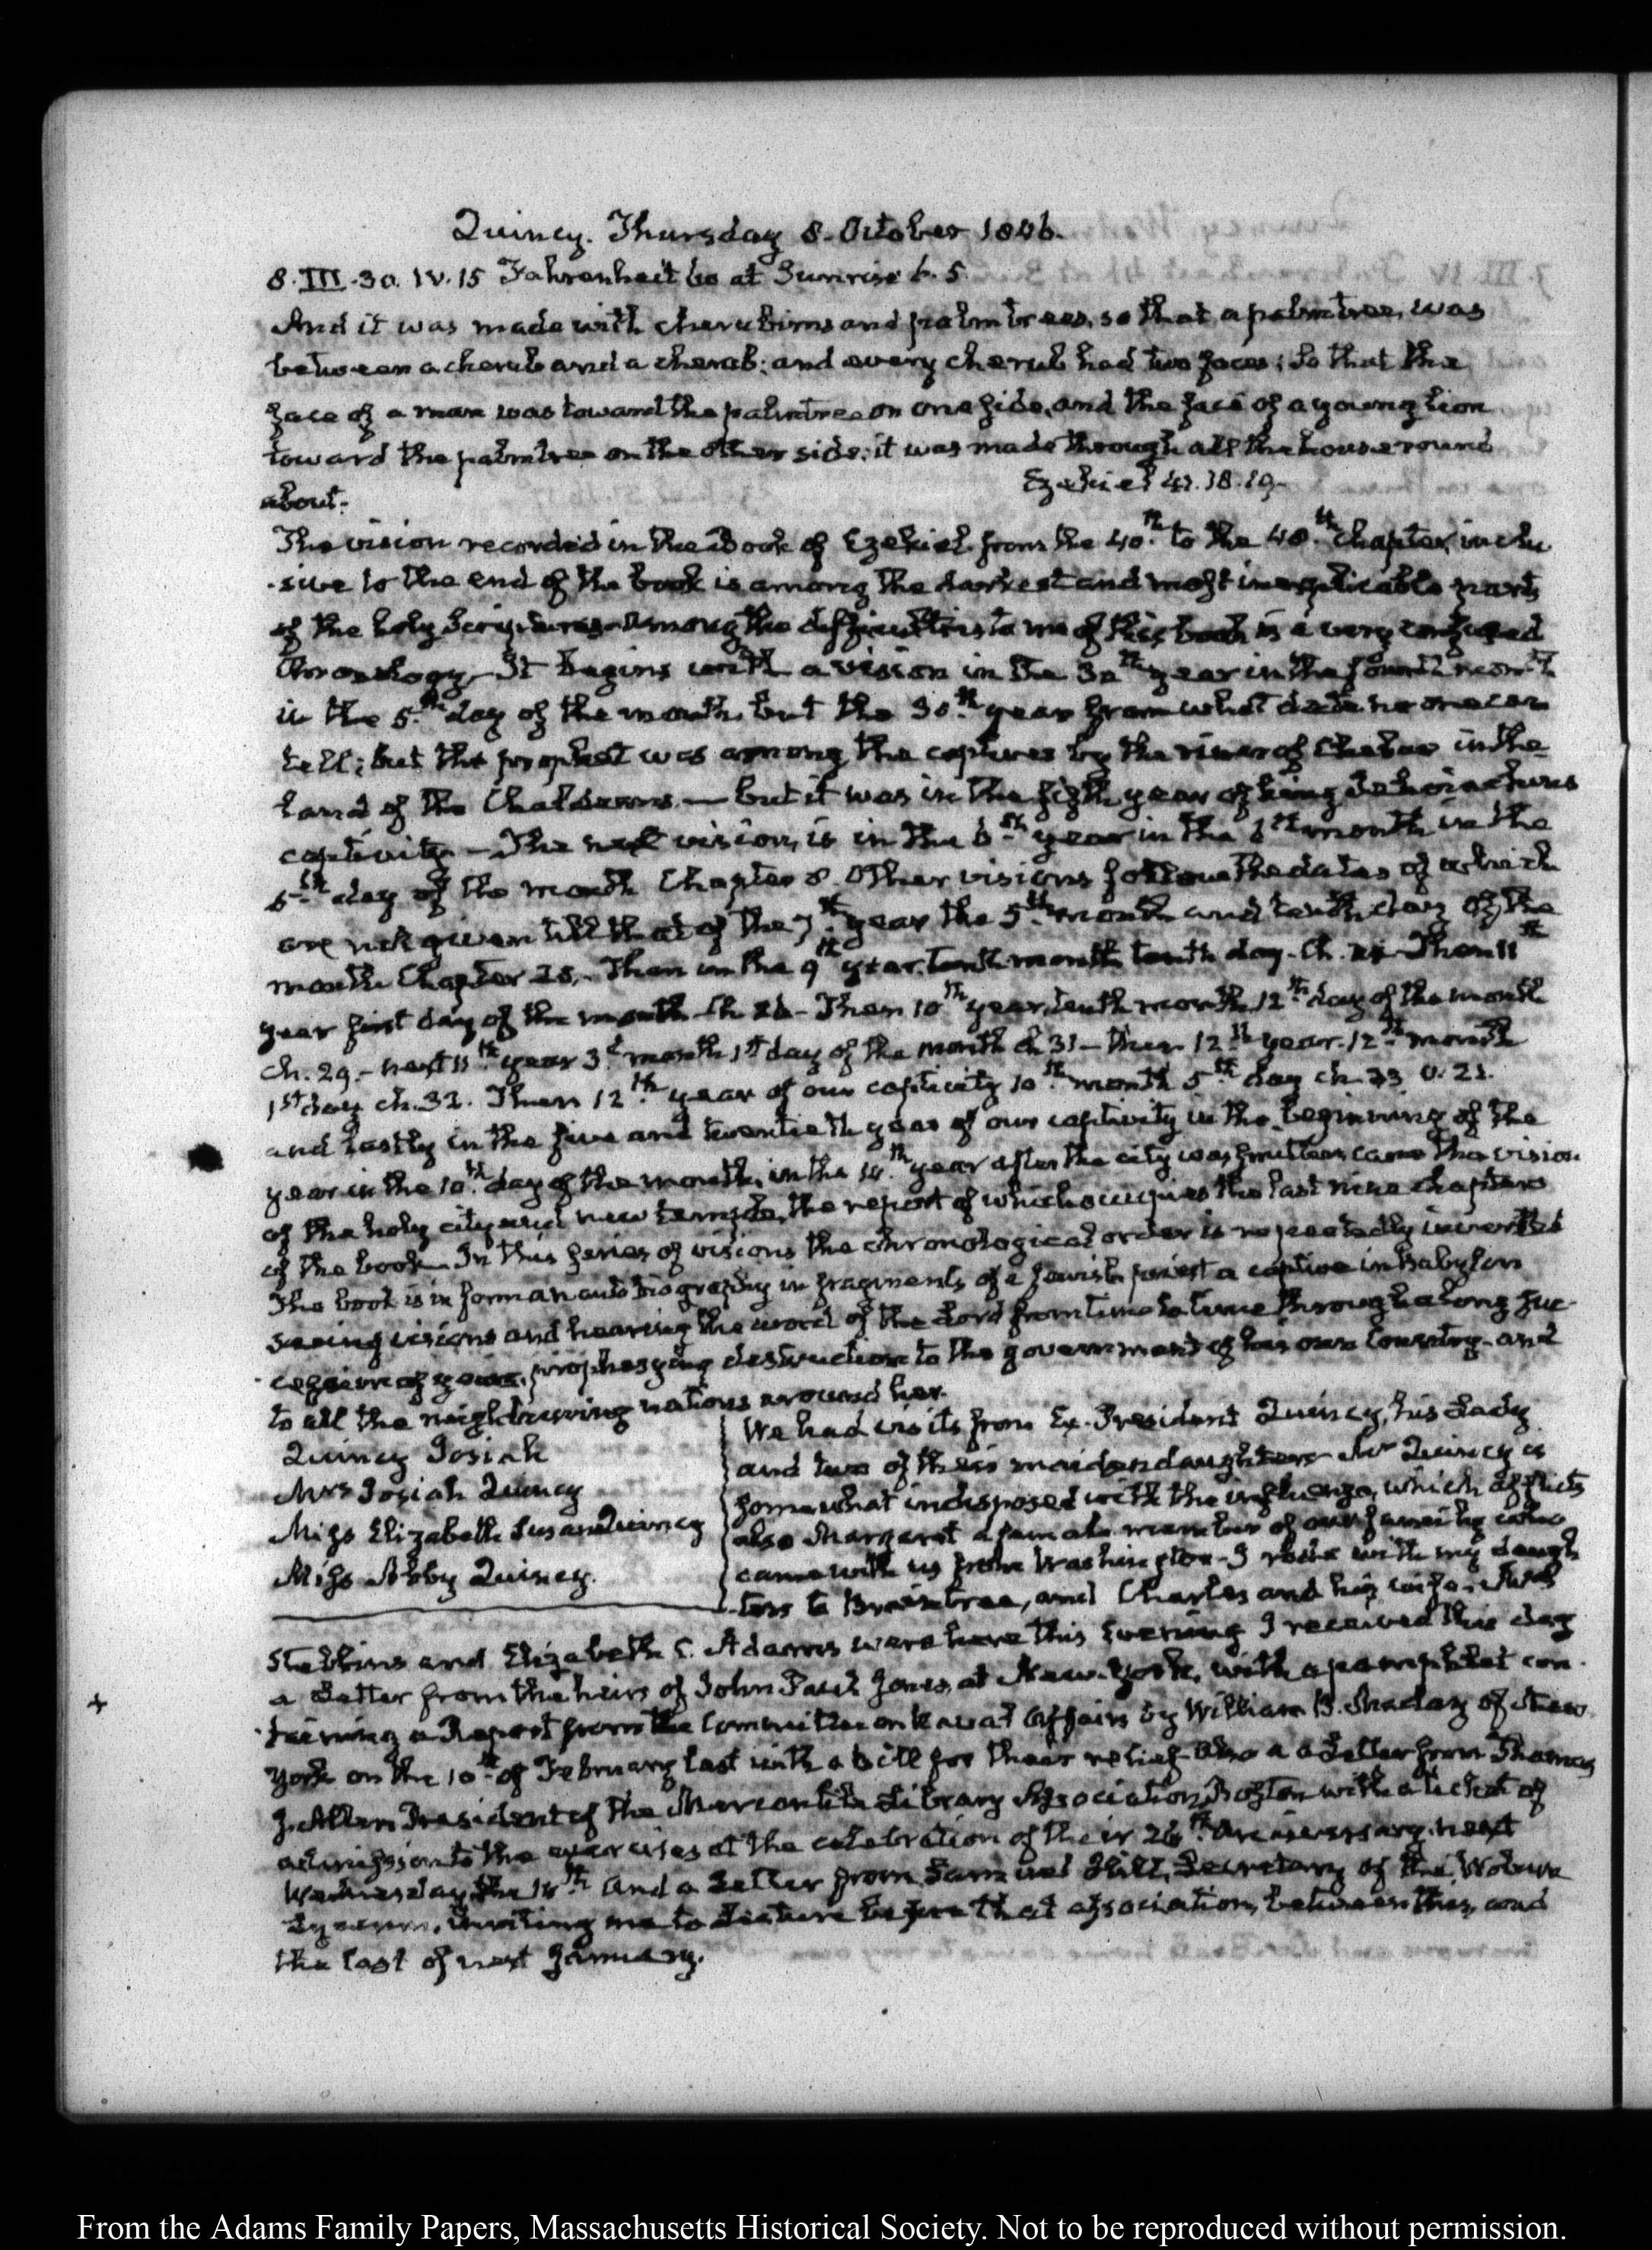 Quincy. Thursday 8. October 1846.
8. III. 30. IV. 15 Fahrenheit 60 at Sunrise 6. 5
And it was made with cherubims and palmtrees, so that a palmtree, was
between a cherub and a cherub: and every cherub had two faces: So that the
face of a man was toward the palmtree on one side, and the face of a young lion
toward the palmtree on the other side: it was made through all the house round
about.
Ezekiel 41. 18. 19.
The vision recorded in the Book of Ezekiel from the 40th. to the 48th. chapter, inclu
-sive to the end of the book is among the darkest and most inexplicable parts
of the holy Scriptures. Among the difficulties to me of this book is a very confused
Chronology. It begins with a vision in the 30th year in the fourth month
in the 5th. day of the month, but the 30th. year from what date no one can
tell; but the prophet was among the captives by the river of Chebar in the
land of the Chaldeans. — but it was in the fifth year of king Jehoiachins
captivity — The next vision, is in the 6th. year in the 6th month in the
5th. day of the month Chapter 8. Other visions follow the dates of which
are not given till that of the 7th. year the 5th. month and tenth day of the
month Chapter 20. Then in the 9th year tenth month tenth day. Ch. 24 Then 11th
year first day of the month Ch 26 - Then 10th year, tenth month 12th. day of the month
Ch. 29. - next 11th. year 3d. month 1st day of the month Ch 31 — then 12th year. 12th. month
1st day ch. 32. Then 12th. year of our captivity 10th. month 5th. day ch. 33 v. 21.
and lastly in the five and twentieth year of our captivity in the beginning of the
year in the 10th. day of the month, in the 14th. year after the city was smitten came the vision
of the holy city and new temple, the report of which occupies the last nine chapters
of the book. In this series of visions the chronological order is repeatedly inverted
The book is in form an autobiography in fragments of a Jewish priest a captive in Babylon
seeing visions and hearing the word of the Lord from time to time through a long suc-
-cession of years, prophesying destruction to the government of his own Country- and
to all the neighbouring nations around her.
Quincy Josiah
Mrs Josiah Quincy
Miss Elizabeth Susan Quincy
Miss Abby Quincy.
We had visits from Ex-President Quincy, his Lady
and two of their maiden daughters Mr Quincy is
somewhat indisposed with the influenza, which afflicts
also Margaret a female member of our family who
came with us from Washington - I rode with my daugh
-ters to Braintree, and Charles and his wife, Mrs
Stebbins and Elizabeth C. Adams were here this Evening I received this day
a Letter from the heirs of John Paul Jones, at New-York, with a pamphlet con-
-taining a Report from the Committee on Naval Affairs by William B. Maclay of New
York on the 10th. of February last with a bill for their relief. Also a a Letter from Thomas
J. Allen President of the Mercantile Library Association, Boston with a ticket of
admission to the exercises at the celebration of their 26th. Anniversary. next
Wednesday the 14th. and a Letter from Samuel Hill, Secretary of the Woburn
Lyceum. inviting me to Lecture before that association, between this, and
the last of next January.
+
From the Adams Family Papers, Massachusetts Historical Society. Not to be reproduced without permission.